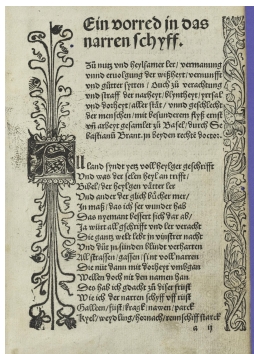 Ein vorred in das
narren schyff.
Zů nutz vnd heylsamer ler / vermanung
vnnd ervolgung der wyßheyt / vernunfft
vnd gůtter sytten / Ouch zů verachtung
vnd straff der narheyt / blyntheyt / yrrsal
vnd dorheyt / aller ståt / vnnd geschlecht
der menschen / mit besunderem flyß ernst
vñ arbeyt gesamlet zů Basel / durch Se-
bastianũ Brant. in beyden rechtē doctor.
All land syndt yetz voll heylger geschrifft
Vnd was der selen heyl an trifft /
Bibel / der heylgen vätter ler
Vnd ander der glich bůcher mer /
Jn maß / das ich ser wunder hab
Das nyemant bessert sich dar ab /
Ja würt all gschrifft vnd ler veracht
Die gantz welt lebt in vinstrer nacht
Vnd důt in sünden blindt verharren
All strassen / gassen / sint voll narren
Die nüt dann mit dorheyt vmbgan
Wellen doch nit den namen han
Des hab ich gdacht zů diser früst
Wie ich der narren schyff vff rüst
Galleen / füst / kragk / nawen / parck
Kyel / weydling / hornach / rennschiff starck
a ij